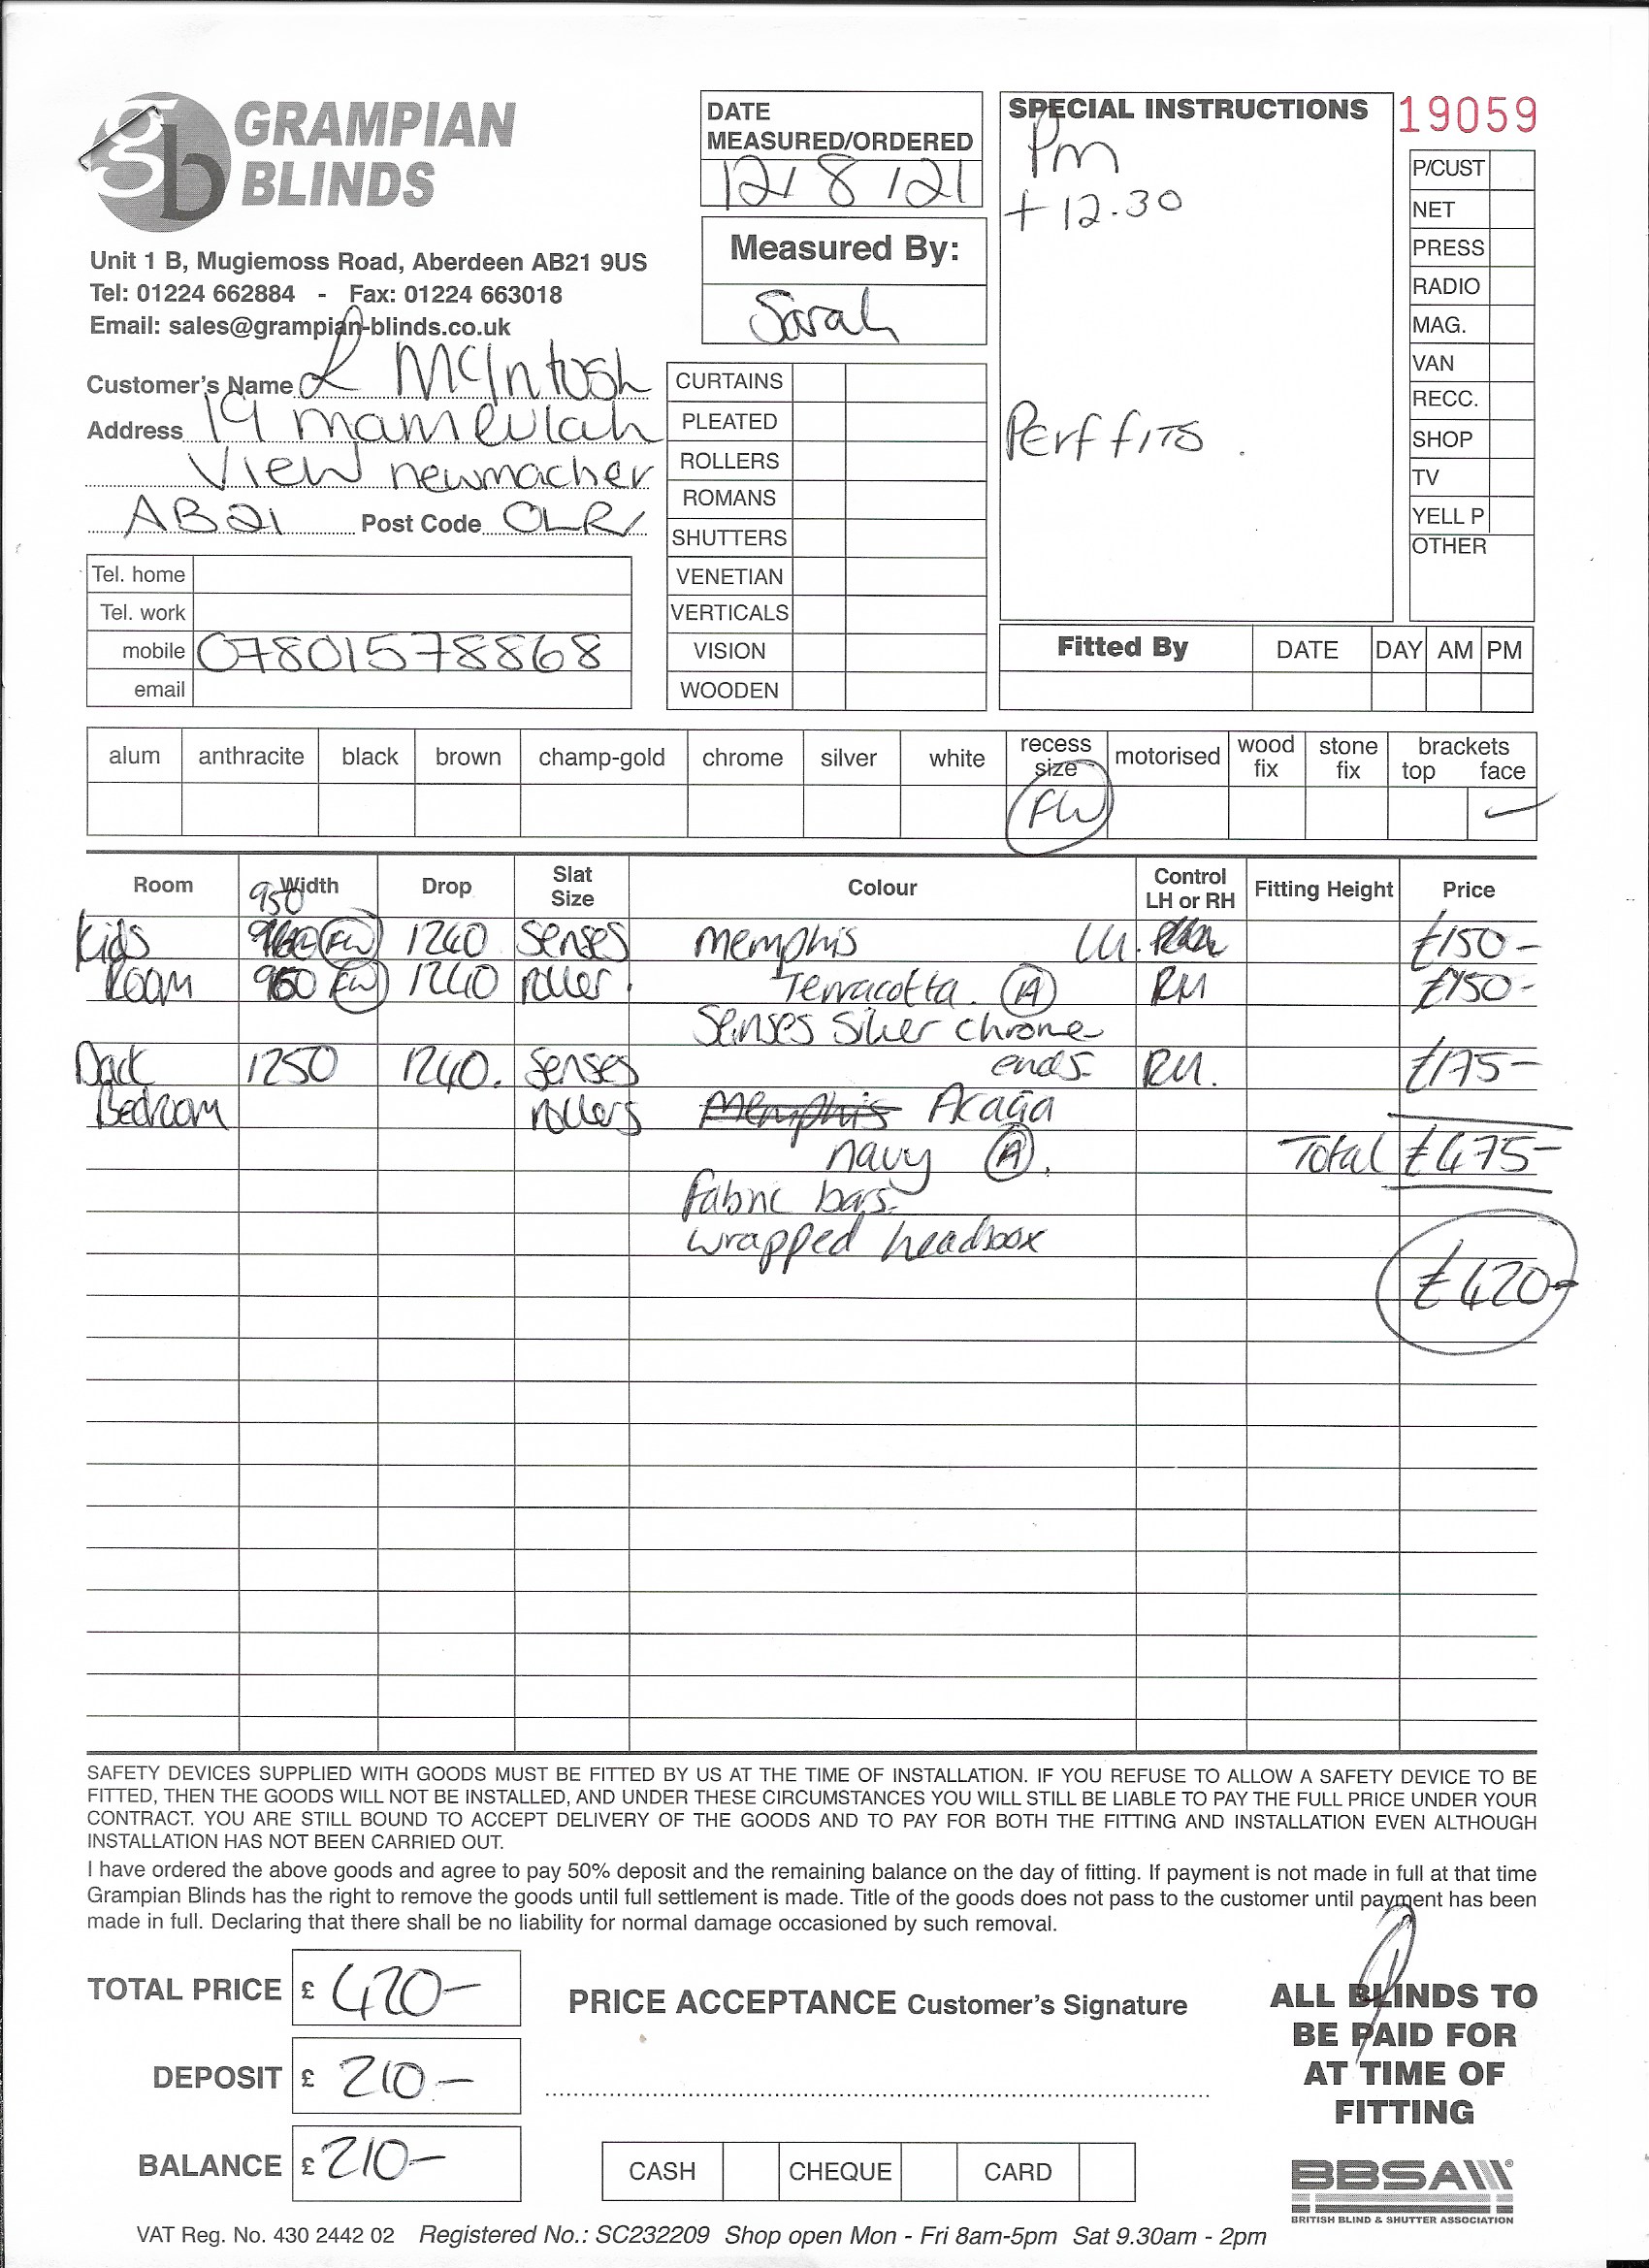 gb GRAMPIAN BLINDS
Unit 1 B, Mugiemoss Road, Aberdeen AB21 9US
Tel: 01224 662884 - Fax: 01224 663018
Email: sales@grampian-blinds.co.uk
Customer's Name L McIntosh
Address 19 mameulah
View newmacher
AB21 Post Code OLR
Tel. home
Tel. work
mobile 07801578868
email
DATE
MEASURED/ORDERED
12/8/21
Measured By:
Sarah
CURTAINS
PLEATED
ROLLERS
ROMANS
SHUTTERS
VENETIAN
VERTICALS
VISION
WOODEN
SPECIAL INSTRUCTIONS
Pm
+ 12.30
Perf fits.
19059
P/CUST
NET
PRESS
RADIO
MAG.
VAN
RECC.
SHOP
TV
YELL P
OTHER
Fitted By DATE DAY AM PM
alum anthracite black brown champ-gold chrome silver white recess size motorised wood fix stone fix brackets top face
FW ✓
Room Width Drop Slat Size Colour Control LH or RH Fitting Height Price
950
Kids FW 1240 Senses memphis LH. £150-
Room 950 FW 1240 roller. Terracotta. A RH £150-
Senses Silver chrome
Back 1250 1240. Senses ends. RH. £175-
Bedroom rollers Memphis Acacia
navy A. Total £475-
fabric bars.
wrapped headbox
£420-
SAFETY DEVICES SUPPLIED WITH GOODS MUST BE FITTED BY US AT THE TIME OF INSTALLATION. IF YOU REFUSE TO ALLOW A SAFETY DEVICE TO BE
FITTED, THEN THE GOODS WILL NOT BE INSTALLED, AND UNDER THESE CIRCUMSTANCES YOU WILL STILL BE LIABLE TO PAY THE FULL PRICE UNDER YOUR
CONTRACT. YOU ARE STILL BOUND TO ACCEPT DELIVERY OF THE GOODS AND TO PAY FOR BOTH THE FITTING AND INSTALLATION EVEN ALTHOUGH
INSTALLATION HAS NOT BEEN CARRIED OUT.
I have ordered the above goods and agree to pay 50% deposit and the remaining balance on the day of fitting. If payment is not made in full at that time
Grampian Blinds has the right to remove the goods until full settlement is made. Title of the goods does not pass to the customer until payment has been
made in full. Declaring that there shall be no liability for normal damage occasioned by such removal.
TOTAL PRICE £ 420-
DEPOSIT £ 210-
BALANCE £ 210-
PRICE ACCEPTANCE Customer's Signature
CASH CHEQUE CARD
ALL BLINDS TO
BE PAID FOR
AT TIME OF
FITTING
BBSA
BRITISH BLIND & SHUTTER ASSOCIATION
VAT Reg. No. 430 2442 02 Registered No.: SC232209 Shop open Mon - Fri 8am-5pm Sat 9.30am - 2pm